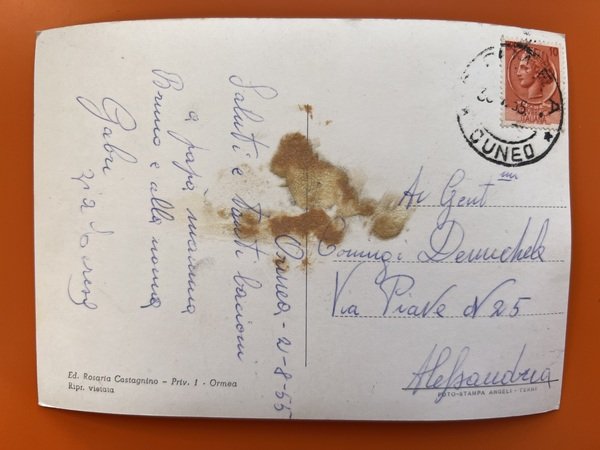 Ormea - 2-8-55
Saluti e tanti bacioni
a papà mamma
Bruno e alla nonna
Gabri
zia
10
ORMEA
CUNEO
Ai Gent mi
Coniugi Demichelis
Via Piave N 25
Alessandria
Ed. Rosaria Castagnino - Priv. 1 - Ormea
Ripr. vietata
FOTO-STAMPA ANGELI - TERNI